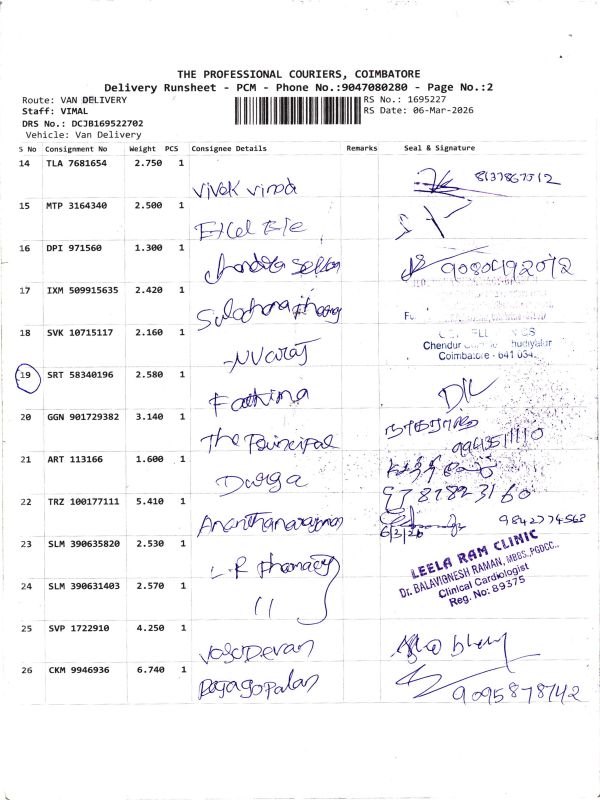 THE PROFESSIONAL COURIERS, COIMBATORE
Delivery Runsheet - PCM - Phone No.:9047080280 - Page No.:2
Route: VAN DELIVERY
RS No.: 1695227
Staff: VIMAL
RS Date: 06-Mar-2026
DRS No.: DCJB169522702
Vehicle: Van Delivery
S No Consignment No Weight PCS Consignee Details Remarks Seal & Signature
14 TLA 7681654 2.750 1
Vivek 8137867512
15 MTP 3164340 2.500 1
Excel
16 DPI 971560 1.300 1
9080492072
17 IXM 509915635 2.420 1
18 SVK 10715117 2.160 1
Chendur
Coimbatore - 641 034.
19 SRT 58340196 2.580 1
Fathima
20 GGN 901729382 3.140 1
The Principal
21 ART 113166 1.600 1
Durga
9787823160
22 TRZ 100177111 5.410 1
Ananthanarayanan 9842774563
6/3/26
23 SLM 390635820 2.530 1
L.R Pharmacy
LEELA RAM CLINIC
Dr. BALAVIGNESH RAMAN, MBBS.,PGDCC.,
Clinical Cardiologist
Reg. No: 89375
24 SLM 390631403 2.570 1
11
25 SVP 1722910 4.250 1
Vasudevan
26 CKM 9946936 6.740 1
Rajagopalan
9095878142